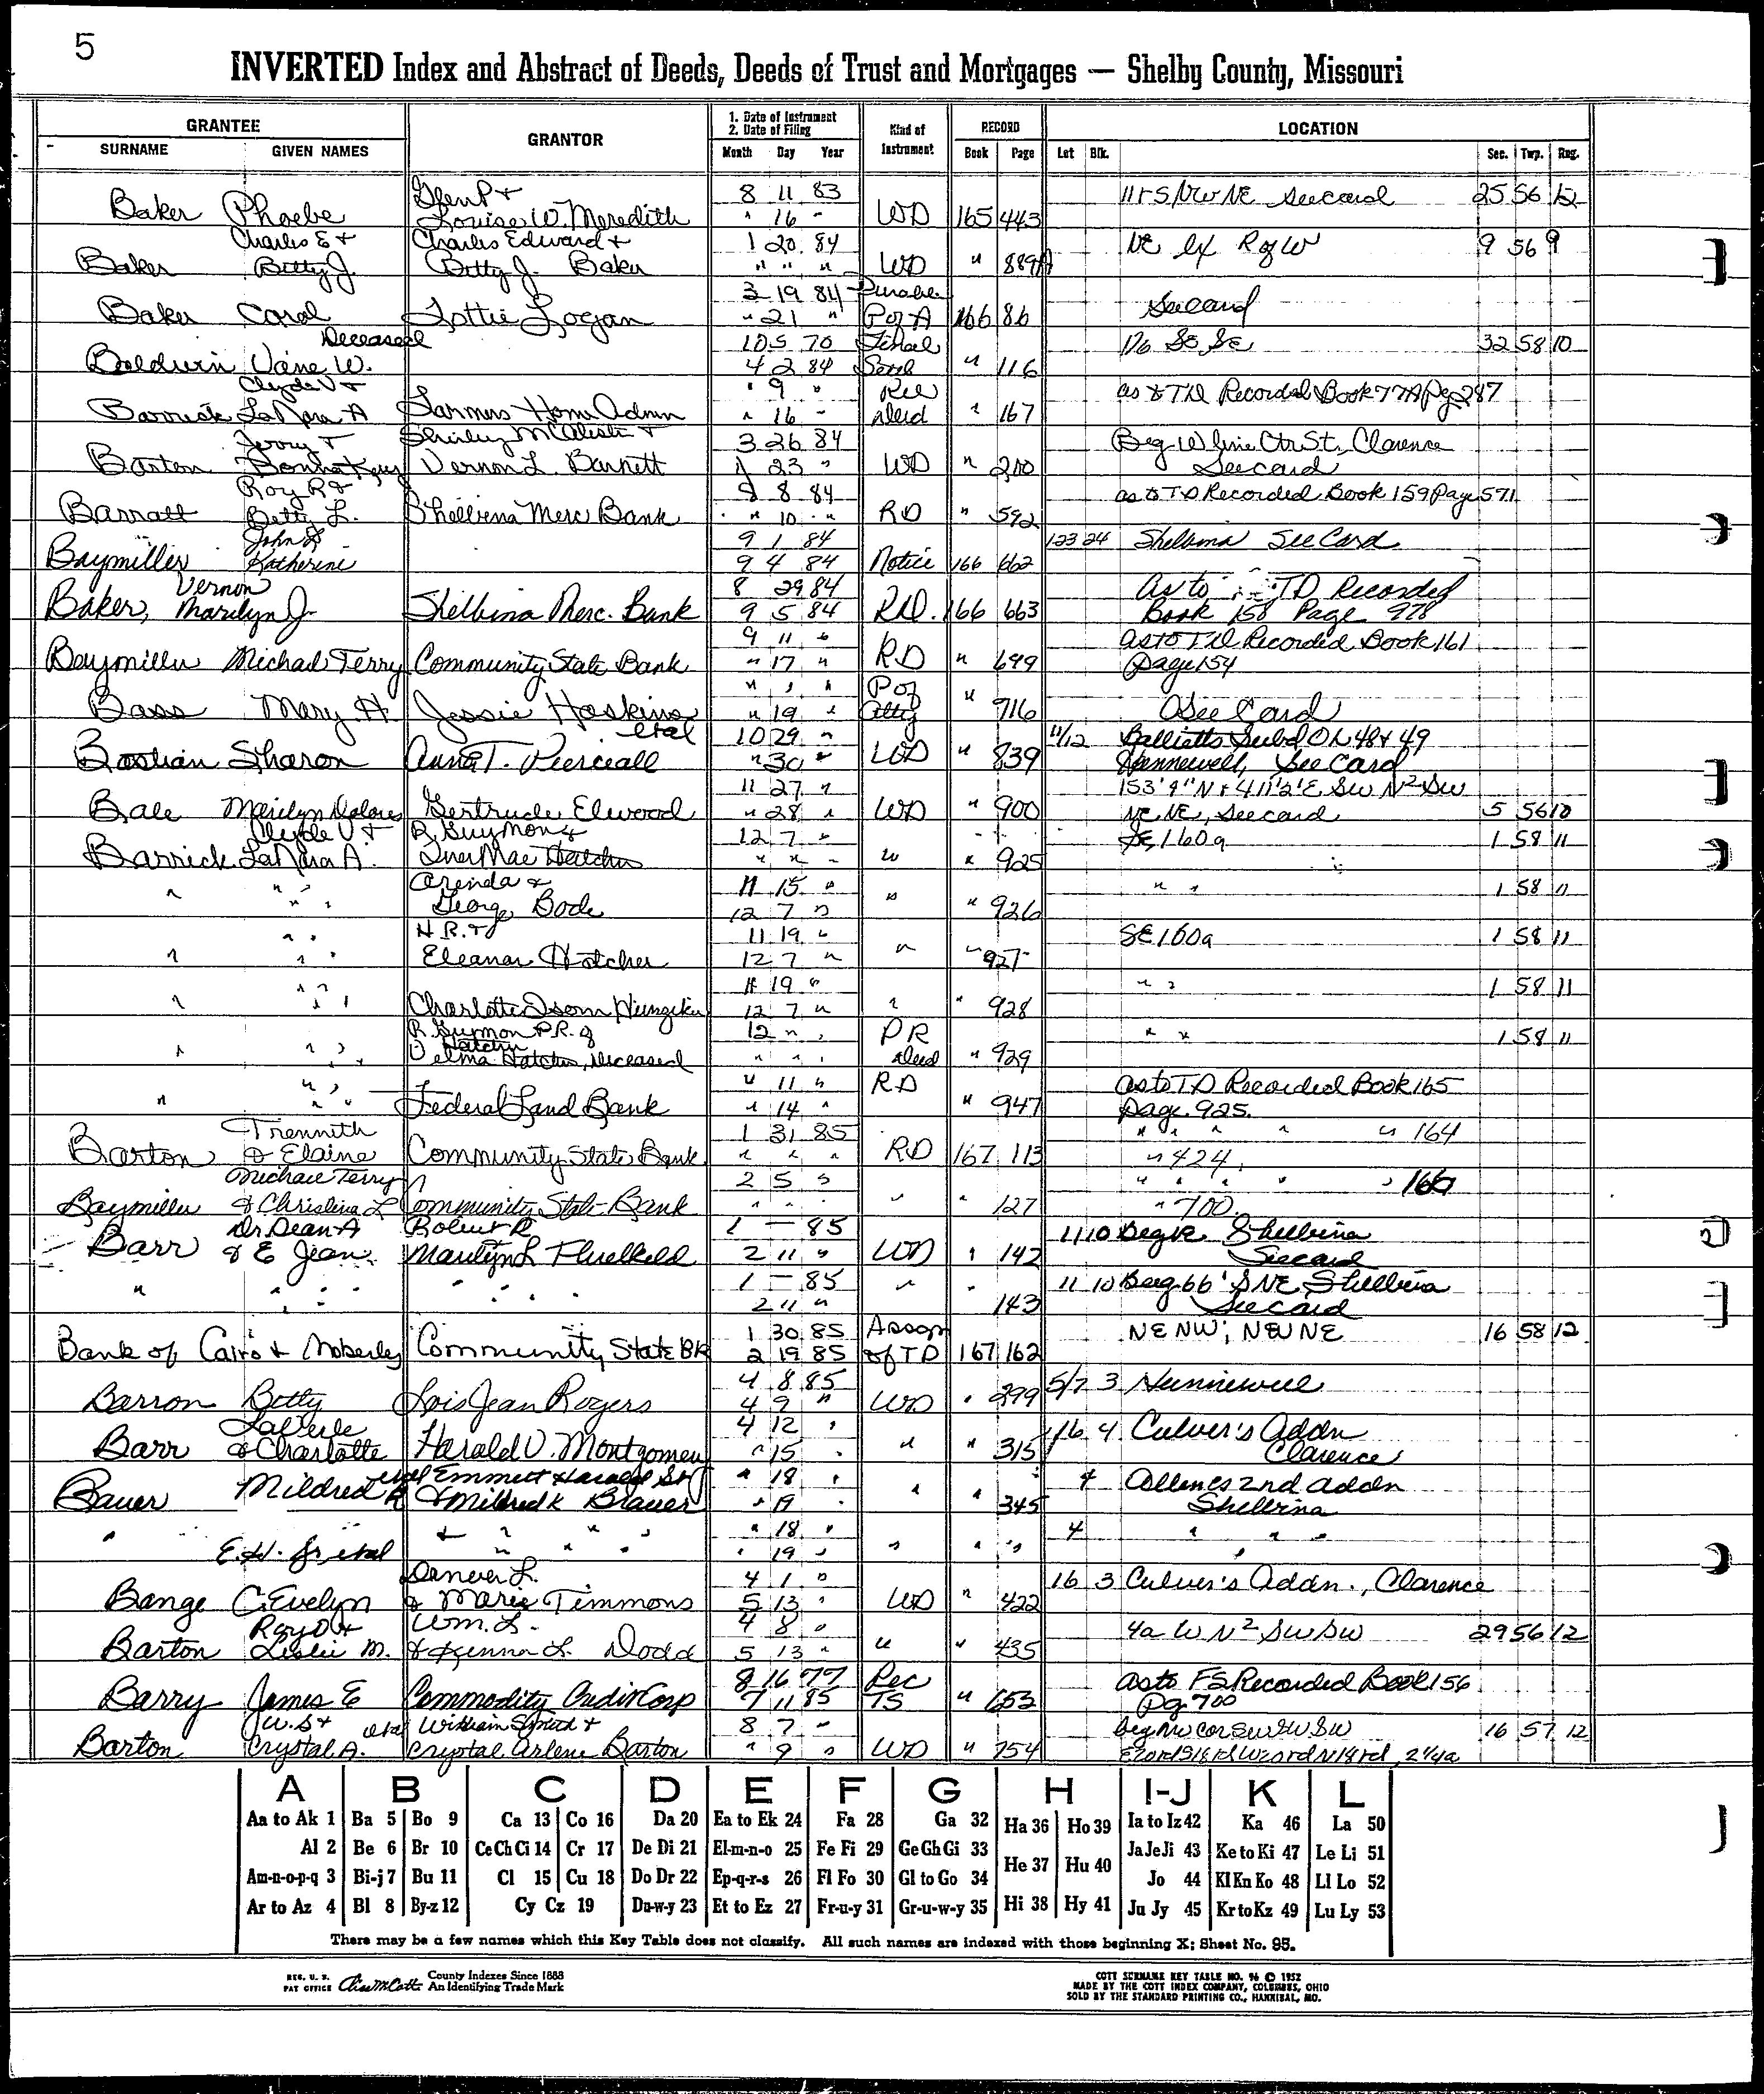 5
INVERTED Index and Abstract of Deeds, Deeds of Trust and Mortgages — Shelby County, Missouri
GRANTEE GRANTOR 1. Date of Instrument 2. Date of Filing Kind of Instrument RECORD LOCATION
SURNAME GIVEN NAMES Month Day Year Book Page Lot Blk. Sec. Twp. Rng.
Glen P + 8 11 83 25 56 12
Baker Phoebe Louise W. Meredith " 16 " WD 165 443 See card
Charles E + Charles Edward + 1 20 84 NE ex R of W 9 56 9
Baker Betty J. Betty J. Baker " " " WD " 889A
3 19 84 Durable
Baker Carol Lottie Logan " 21 " P of A 166 86 See card
Deceased 10 5 70 School 32 58 10
Baldwin Vane W. 4 2 84 " 116
Clyde V + " 9 " Rel as to TD Recorded Book 77A Pg 287
Barrick LaNara A Farmers Home Admin " 16 " Deed " 167
Jerry + Shirley McAlister + 3 26 84 Beg W line Ctr St., Clarence
Barton Donna Kay Vernon L. Barnett 23 " WD " 210 See card
Roy R + 8 8 84 as to TD Recorded Book 159 Page 571
Barratt Betty L. Shelbina Merc Bank " 10 " RD " 592
John L 9 1 84 123 24 Shelbina See Card
Baymiller Katherine 9 4 84 Notice 166 662
Vernon 8 29 84 As to TD Recorded
Baker, Marilyn J. Shelbina Merc. Bank 9 5 84 RD. 166 663 Book 158 Page 978
9 11 " as to TD Recorded Book 161
Baymiller Michael Terry Community State Bank " 17 " RD " 699 page 154
" " " P of
Bass Mary H. Jessie Hoskins " 19 " Atty " 716 See Card
etal 10 29 " 11/12 Ballietts Subd OL 48 + 49
Bastian Sharon Anna T. Pierceall " 30 " WD " 839 Hunnewell, See Card
11 27 " 153'9" N + 411'2' E SW N2 SW
Bale Marilyn Delores Gertrude Elwood " 28 " WD " 900 NE NE, See card 5 56 10
Clyde V + R Guymon + 12 7 " SE, 160a 1 58 11
Barrick LaNara A. Inez Mae Hatcher " " " " " 925
Arenda + 11 15 " " " 1 58 11
" " " George Bode 12 7 " " " 926
" " H R. + 11 19 " SE 160a 1 58 11
" " " Eleanor Hatcher 12 7 " " " 927
" " 11 19 " " " 1 58 11
" " " Charlotte Isom Hunziker 12 7 " " " 928
R. Guymon P.R. of 12 " " PR " " 1 58 11
Hatcher
" " " Velma Hatcher, deceased " " " Deed " 929
" " " 11 " RD as to TD Recorded Book 165
" " " Federal Land Bank " 14 " " 947 page 925.
Trennith 1 31 85 " " " " " 164
Barton & Elaine Community State Bank " " " RD 167 113 " 424,
Michael Terry 2 5 " " " " " " 166
Baymiller & Christina L Community State Bank " " " " " 127 " 700.
Dr. Dean A Robert R 1 — 85 11 10 Shelbina
Barr & E Jean Marilyn L Threlkeld 2 11 " WD " 142 See card
1 — 85 " " 11 10 Beg 66' S NE, Shelbina
" " " " " " 2 11 " 143 See card
1 30 85 Assgn NE NW; NW NE 16 58 12
Bank of Cairo & Moberly Community State Bk 2 19 85 of TD 167 162
4 8 85 5/7 3 Hunnewell
Barron Betty Lois Jean Rogers 4 9 " WD " 299
LaVerle 4 12 " 4 Culver's Addn
Barr & Charlotte Harald V. Montgomery " 15 " " " 315 Clarence
etal Emmett " 18 " 4 Collene's 2nd Addn
Bauer Mildred K & Mildred K Bauer " 19 " " " 345 Shelbina
" & " " " " 18 " 4 " " "
E.H. Jr etal " " " " 19 " " " " "
Denver L. 4 1 " 16 3 Culver's Addn., Clarence
Bange C Evelyn & Marie Timmons 5 13 " WD " 422
Roy D + Wm. L. 4 8 " 4a W N2, SW SW 29 56 12
Barton Leslie M. & Glenna L. Dodd 5 13 " " " 435
8 16 77 Rec as to FS Recorded Book 156
Barry James E Commodity Credit Corp 7 11 85 TS " 653 pg. 700
W. S + etal William Smith + 8 7 " beg NW cor SW SW SW 16 57 12
Barton Crystal A. Crystal Arlene Barton " 9 " WD " 754 2¼a
A B C D E F G H I-J K L
Aa to Ak 1 Ba 5 Bo 9 Ca 13 Co 16 Da 20 Ea to Ek 24 Fa 28 Ga 32 Ha 36 Ho 39 Ia to Iz 42 Ka 46 La 50
Al 2 Be 6 Br 10 Ce Ch Ci 14 Cr 17 De Di 21 El-m-n-o 25 Fe Fi 29 Ge Gh Gi 33 He 37 Hu 40 Ja Je Ji 43 Ke to Ki 47 Le Li 51
Am-n-o-p-q 3 Bi-j 7 Bu 11 Cl 15 Cu 18 Do Dr 22 Ep-q-r-s 26 Fl Fo 30 Gl to Go 34 Jo 44 Kl Kn Ko 48 Ll Lo 52
Ar to Az 4 Bl 8 By-z 12 Cy Cz 19 Du-w-y 23 Et to Ez 27 Fr-u-y 31 Gr-u-w-y 35 Hi 38 Hy 41 Ju Jy 45 Kr to Kz 49 Lu Ly 53
There may be a few names which this Key Table does not classify. All such names are indexed with those beginning X; Sheet No. 95.
REG. U. S. PAT OFFICE County Indexes Since 1888 An Identifying Trade Mark
COTT SURNAME KEY TABLE NO. 96 © 1952
MADE BY THE COTT INDEX COMPANY, COLUMBUS, OHIO
SOLD BY THE STANDARD PRINTING CO., HANNIBAL, MO.